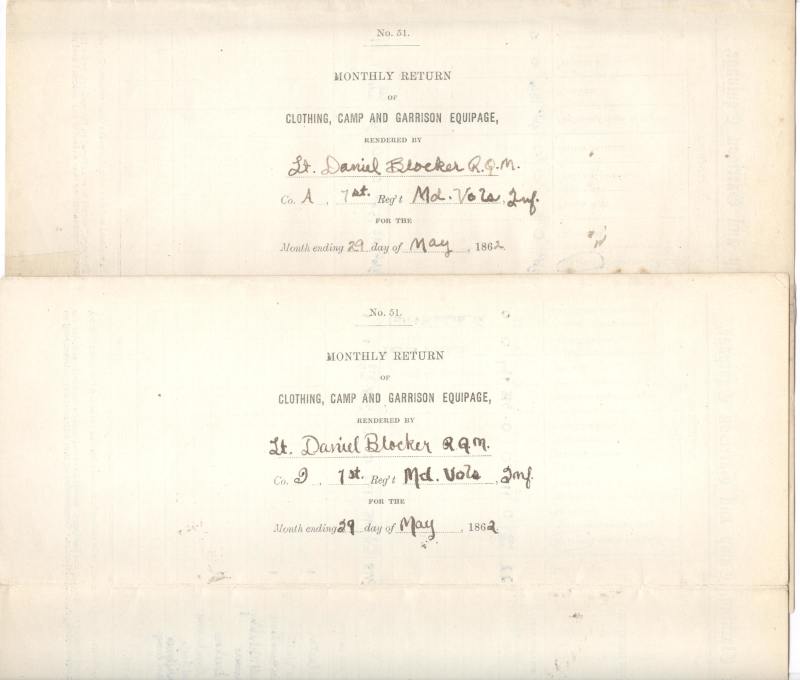 No. 51.
MONTHLY RETURN
OF
CLOTHING, CAMP AND GARRISON EQUIPAGE,
RENDERED BY
Lt. Daniel Blocker R.Q.M.
Co. A, 1st. Reg't Md. Vols, Inf.
FOR THE
Month ending 29 day of May, 1862.
No. 51.
MONTHLY RETURN
OF
CLOTHING, CAMP AND GARRISON EQUIPAGE,
RENDERED BY
Lt. Daniel Blocker R.Q.M.
Co. D, 1st. Reg't Md. Vols, Inf.
FOR THE
Month ending 29 day of May, 1862.